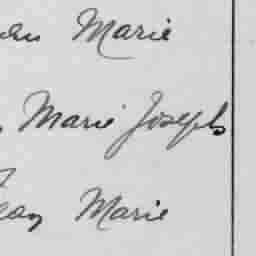 Marie
Marie Joseph
Jean Marie